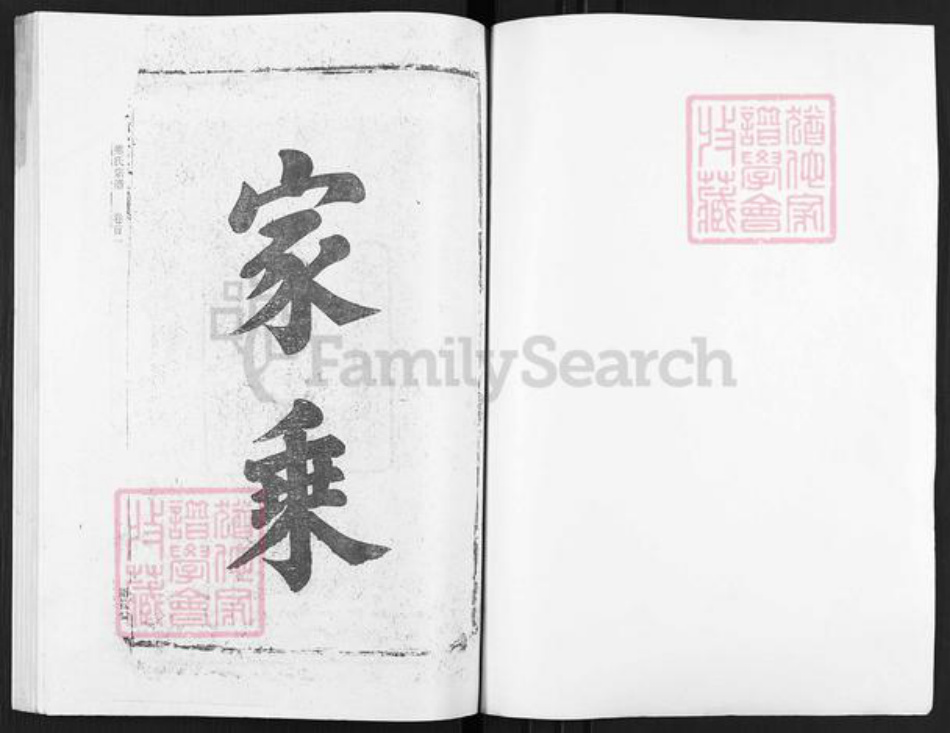 家乘
氏宗譜 卷首
猶他家
譜學會
收藏
猶他家
譜學會
收藏
FamilySearch